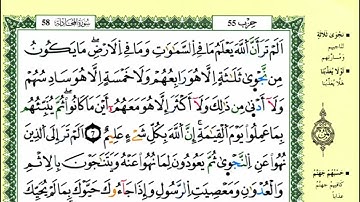 58 سُورَةُ المُجَادلَة
حِزب 55
أَلَمْ تَرَ أَنَّ ٱللَّهَ يَعْلَمُ مَا فِي ٱلسَّمَٰوَٰتِ وَمَا فِي ٱلْأَرْضِ مَا يَكُونُ
مِن نَّجْوَىٰ ثَلَٰثَةٍ إِلَّا هُوَ رَابِعُهُمْ وَلَا خَمْسَةٍ إِلَّا هُوَ سَادِسُهُمْ
وَلَا أَدْنَىٰ مِن ذَٰلِكَ وَلَا أَكْثَرَ إِلَّا هُوَ مَعَهُمْ أَيْنَ مَا كَانُوا ثُمَّ يُنَبِّئُهُم
بِمَا عَمِلُوا يَوْمَ ٱلْقِيَٰمَةِ إِنَّ ٱللَّهَ بِكُلِّ شَيْءٍ عَلِيمٌ ٧ أَلَمْ تَرَ إِلَى ٱلَّذِينَ
نُهُوا عَنِ ٱلنَّجْوَىٰ ثُمَّ يَعُودُونَ لِمَا نُهُوا عَنْهُ وَيَتَنَٰجَوْنَ بِٱلْإِثْمِ
وَٱلْعُدْوَٰنِ وَمَعْصِيَتِ ٱلرَّسُولِ وَإِذَا جَاءُوكَ حَيَّوْكَ بِمَا لَمْ يُحَيِّكَ
نَجْوَى ثَلَاثَةٍ
تَنَاجِيهِم
وَمُسَارَّتِهِم
لَوْلَا يُعَذِّبُنَا
هَلَّا يُعَذِّبُنَا
حَسْبُهُمْ جَهَنَّمُ
كَافِيهِم جَهَنَّمُ